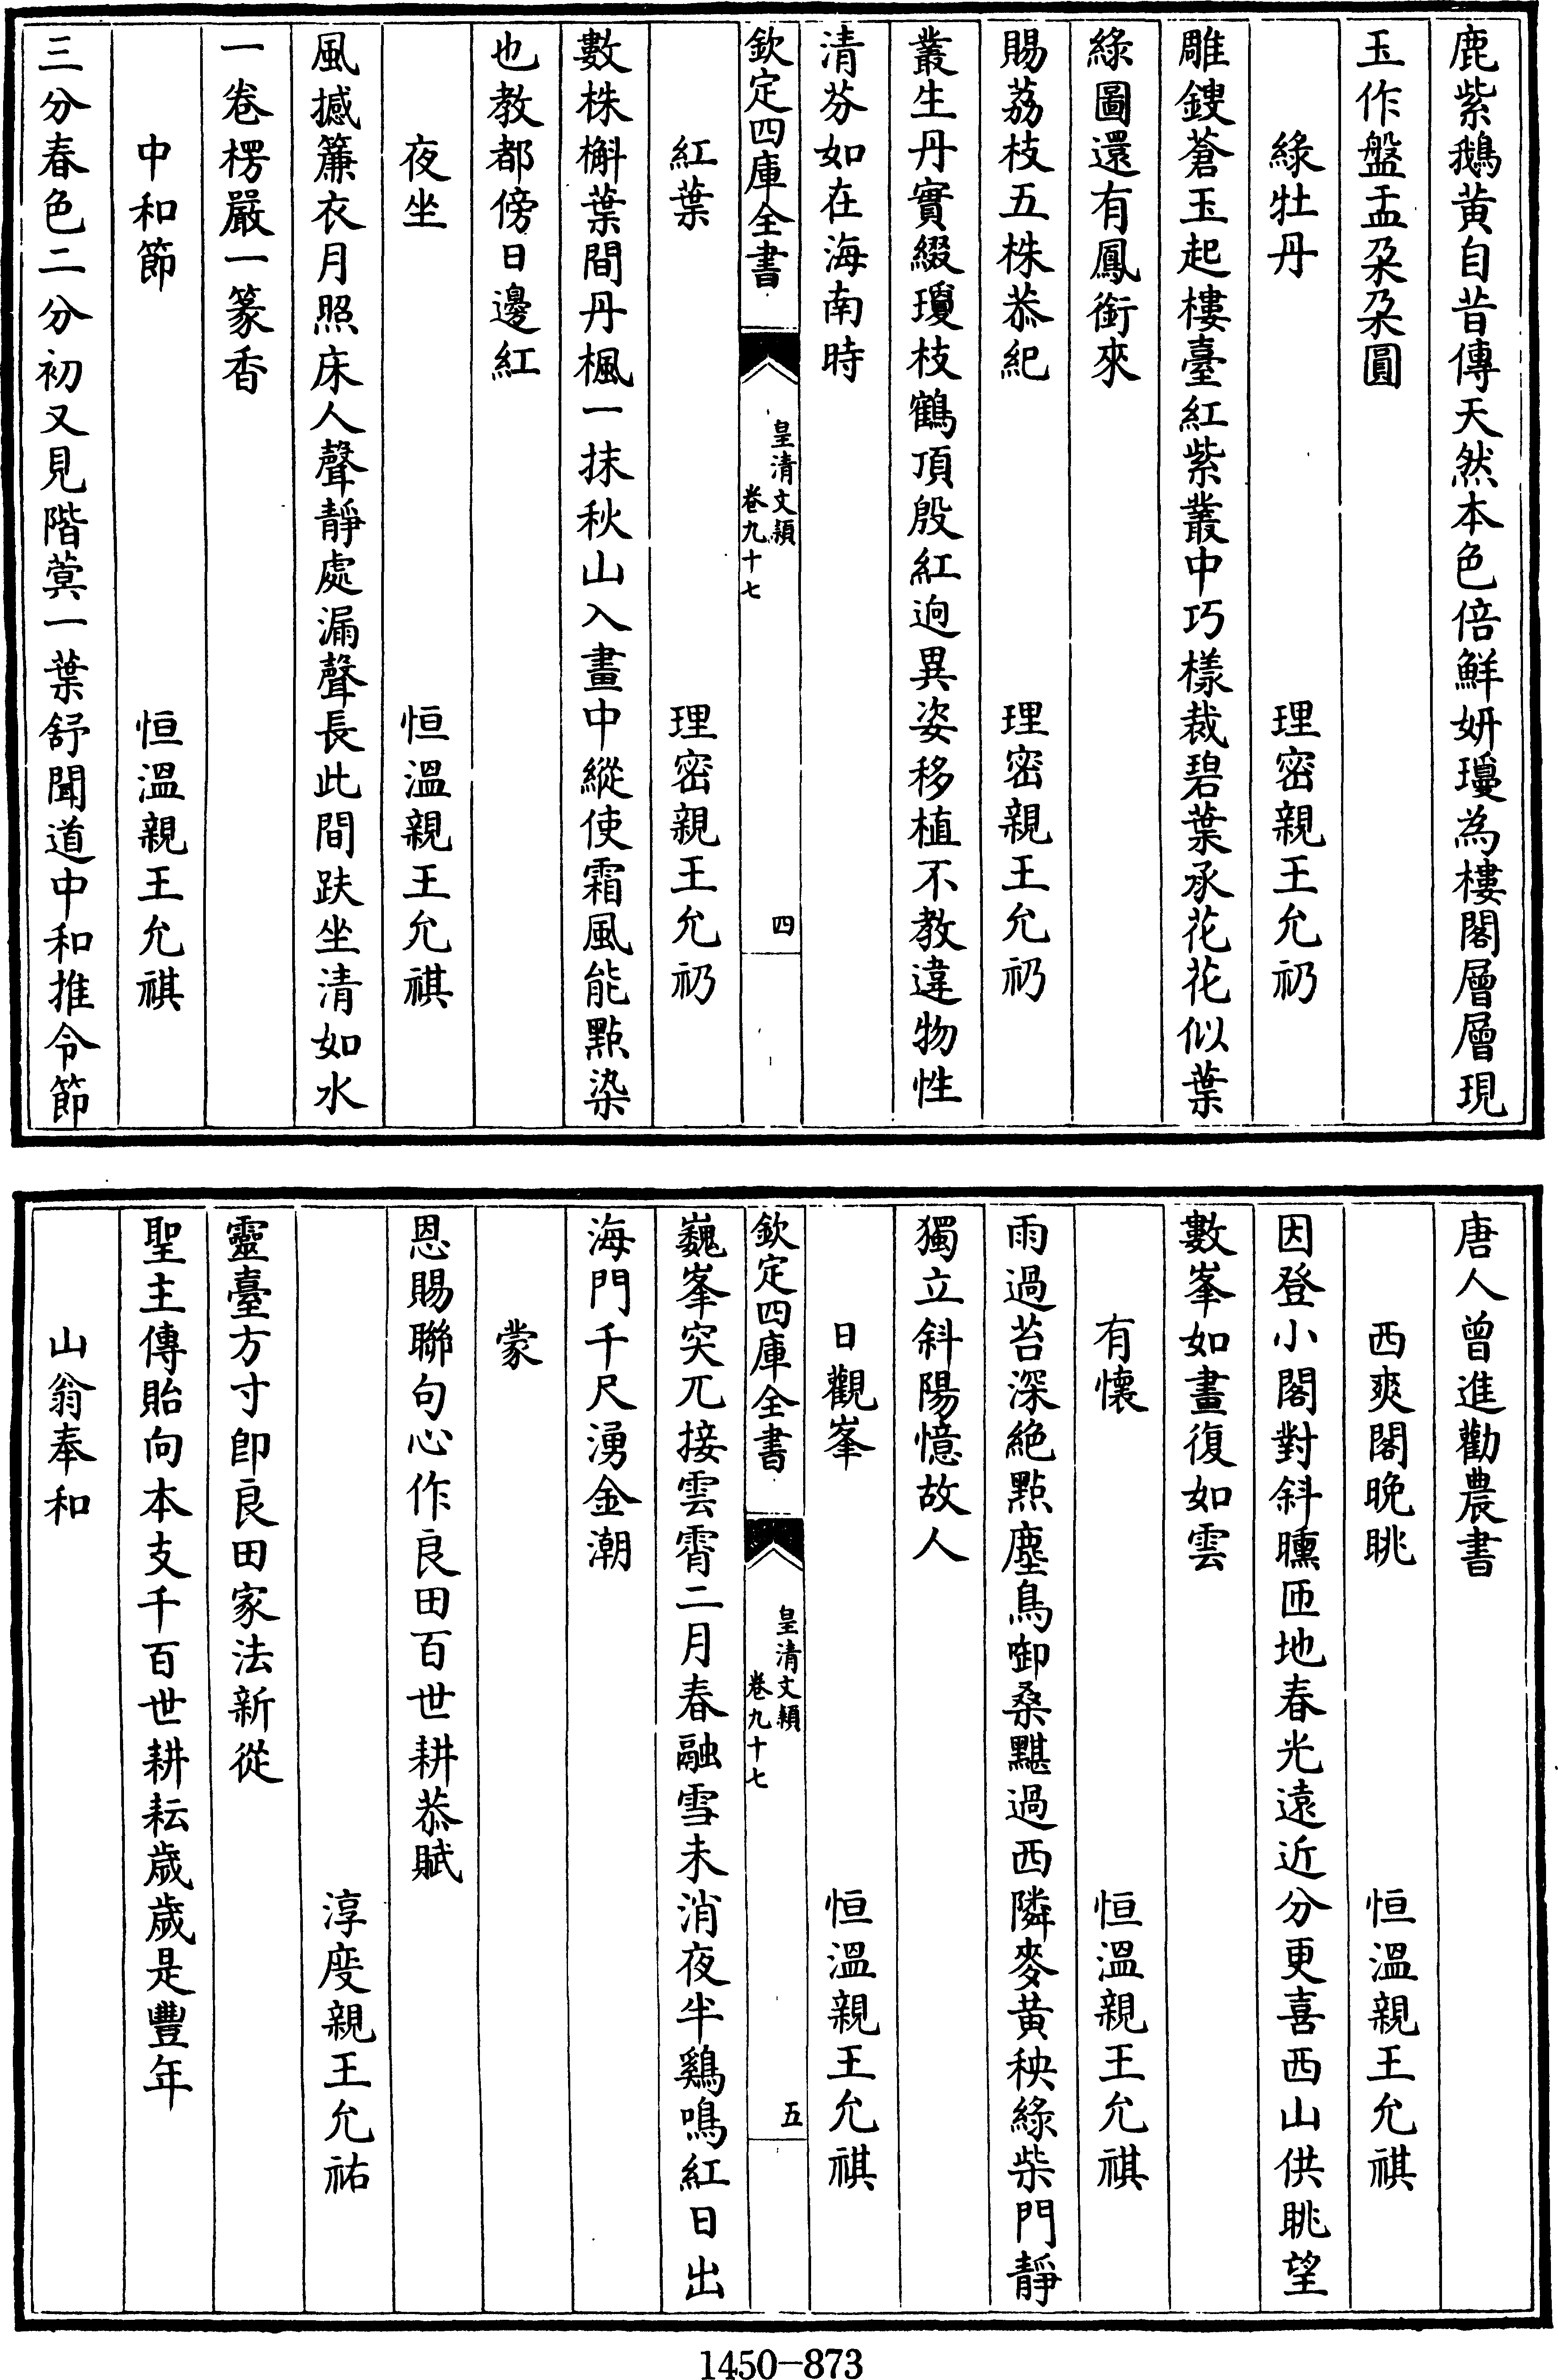 鹿紫鵝黄自昔傳天然本色倍鮮妍瓊為樓閣層層現
玉作盤盂朶朶圓
綠牡丹 理密親王允礽
雕鎪蒼玉起樓臺紅紫叢中巧樣裁碧葉承花花似葉
綠圖還有鳳銜來
賜荔枝五株恭紀 理密親王允礽
叢生丹實綴瓊枝鶴頂殷紅逈異姿移植不教違物性
清芬如在海南時
欽定四庫全書 皇清文穎 卷九十七 四
紅葉 理密親王允礽
數株槲葉間丹楓一抹秋山入畫中縱使霜風能點染
也教都傍日邊紅
夜坐 恒溫親王允祺
風撼簾衣月照床人聲靜處漏聲長此間趺坐清如水
一卷楞嚴一篆香
中和節 恒溫親王允祺
三分春色二分初又見階蓂一葉舒聞道中和推令節
唐人曾進勸農書
西爽閣晚眺 恒溫親王允祺
因登小閣對斜曛匝地春光遠近分更喜西山供眺望
數峯如畫復如雲
有懷 恒溫親王允祺
雨過苔深絶點塵鳥啣桑黮過西隣麥黄秧綠柴門靜
獨立斜陽憶故人
日觀峯 恒溫親王允祺
欽定四庫全書 皇清文穎 卷九十七 五
巍峯突兀接雲霄二月春融雪未消夜半鷄鳴紅日出
海門千尺湧金潮
蒙
恩賜聯句心作良田百世耕恭賦
淳度親王允祐
靈臺方寸卽良田家法新從
聖主傳貽向本支千百世耕耘歲歲是豐年
山翁奉和
1450-873